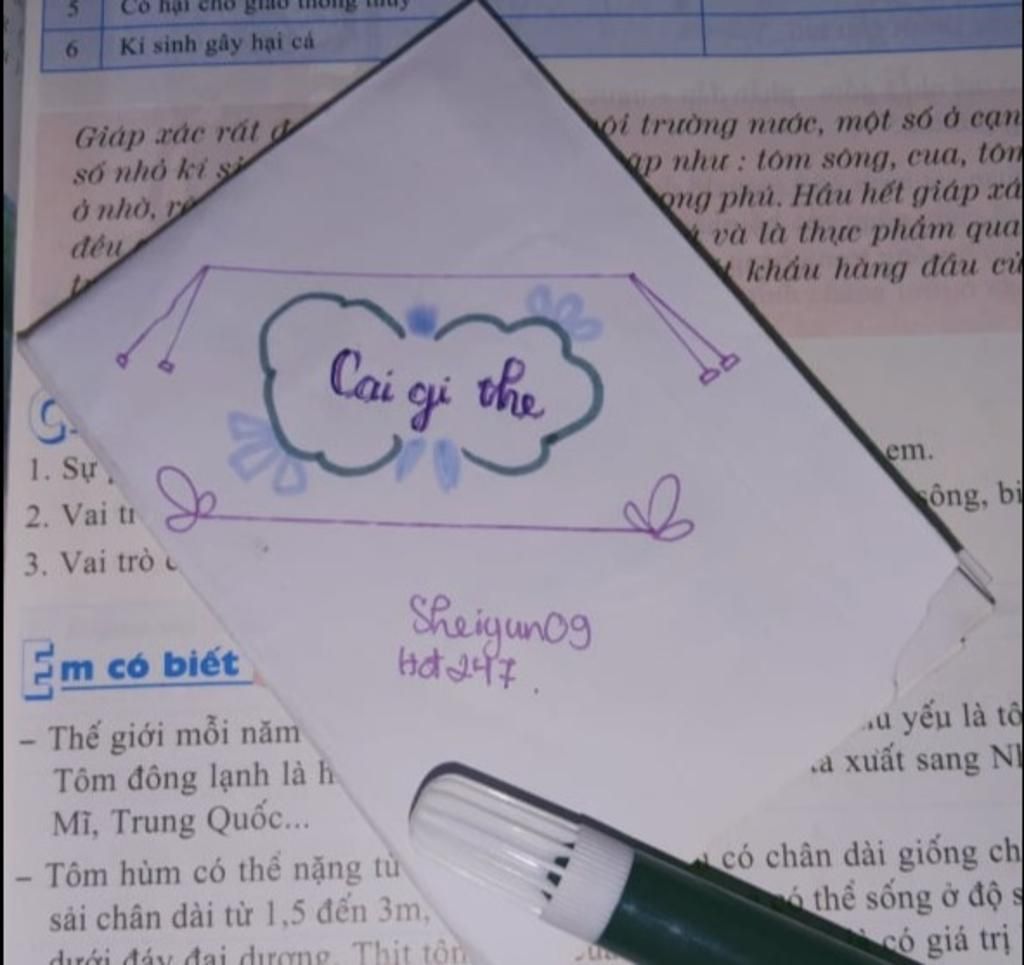 5 Có hại cho giao thông thủy
6 Kí sinh gây hại cá
Giáp xác rất trường nước, một số ở cạn
số nhỏ kí như : tôm sông, cua, tôm
ở nhờ, phú. Hầu hết giáp xá
đều và là thực phẩm qua
khẩu hàng đầu củ
Cai gi the
1. Sự em.
2. Vai sông, bi
3. Vai trò
Sheiyun09
Hd247.
Em có biết
– Thế giới mỗi năm yếu là tô
Tôm đông lạnh là xuất sang Nh
Mĩ, Trung Quốc...
– Tôm hùm có thể nặng từ có chân dài giống ch
sải chân dài từ 1,5 đến 3m, thể sống ở độ s
dưới đáy đại dương. Thịt tôm có giá trị